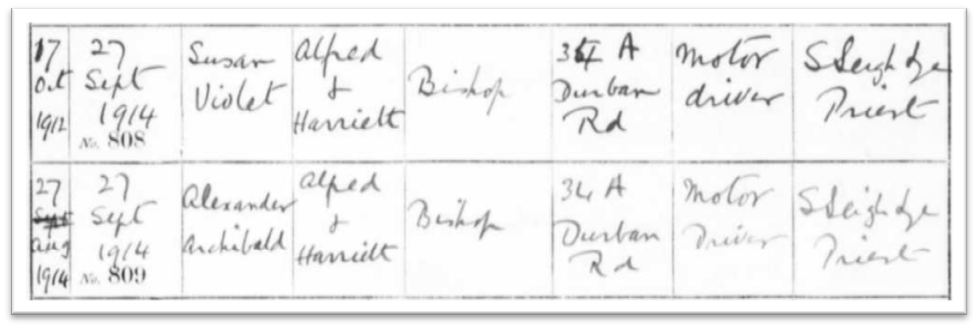 17
Oct
1912
27
Sept
1914
No. 808
Susan
Violet
Alfred
&
Harriett
Bishop
34 A
Durban
Rd
Motor
driver
S Leigh Lye
Priest
27
Sept
Aug
1914
27
Sept
1914
No. 809
Alexander
Archibald
Alfred
&
Harriett
Bishop
34 A
Durban
Rd
Motor
Driver
S Leigh Lye
Priest